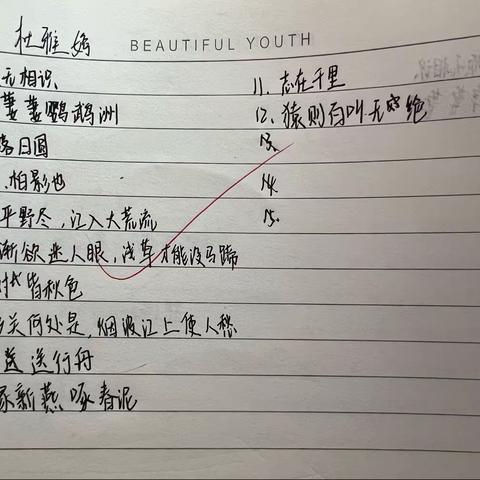 杜雅
BEAUTIFUL YOUTH
无相识
萋萋鹦鹉洲
落日圆
怕影也
平野尽,江入大荒流
渐欲迷人眼,浅草才能没马蹄
树皆秋色
乡关何处是,烟波江上使人愁
送行舟
家新燕啄春泥
11. 志在千里
12. 猿则百叫无穷绝
13.
14.
15.